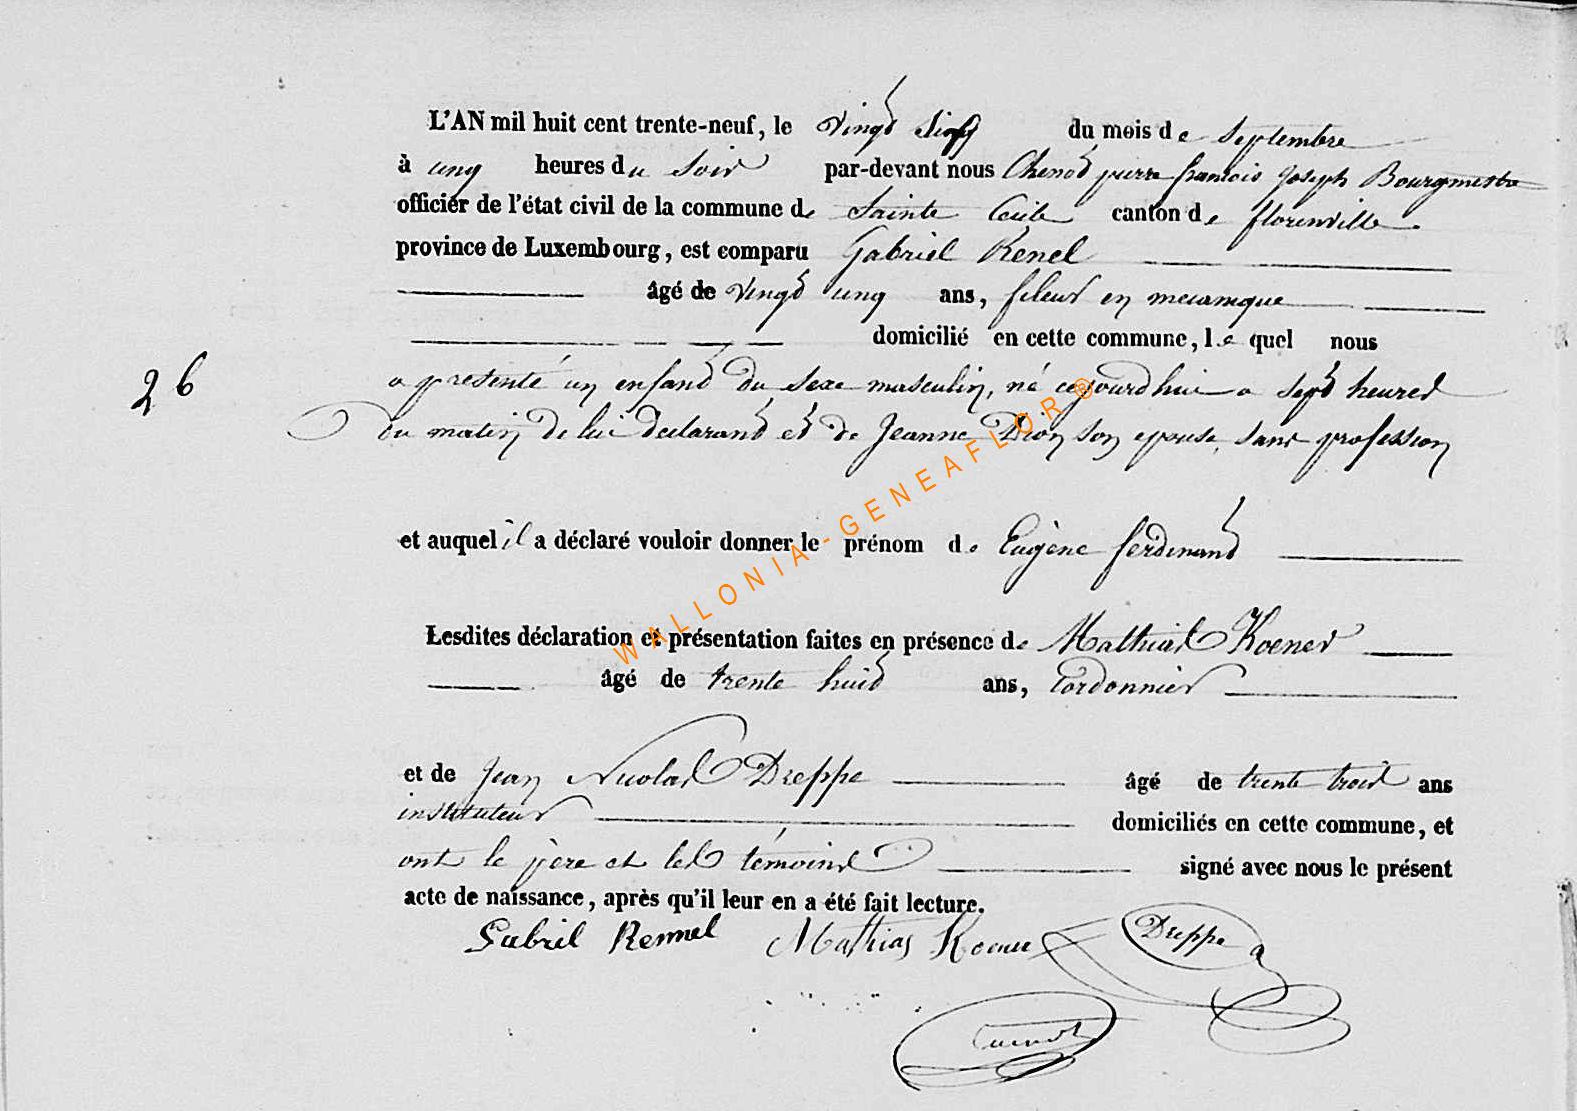 L'AN mil huit cent trente-neuf, le vingt du mois de septembre
à ung heures du soir par-devant nous Chenot pierre francois Joseph Bourgmestre
officier de l'état civil de la commune de Sainte Cecile canton de florenville
province de Luxembourg, est comparu Gabriel Renel
âgé de vingt ung ans, fileur en mecanique
domicilié en cette commune, le quel nous
26
a présenté un enfant du sexe masculin, né cejourdhui a sept heures
du matin de lui declarant et de Jeanne Dion son epouse, sans profession
et auquel il a déclaré vouloir donner le prénom de Eugène ferdinand
Lesdites déclaration et présentation faites en présence de Mathias Koener
âgé de trente huit ans, Cordonnier
et de Jean Nicolas Dreppe âgé de trente trois ans
instituteur domiciliés en cette commune, et
ont le père et les témoins signé avec nous le présent
acte de naissance, après qu'il leur en a été fait lecture.
Gabriel Rennel Mathias Koener Dreppe
Chenot
WALLONIA-GENEAFLOR®